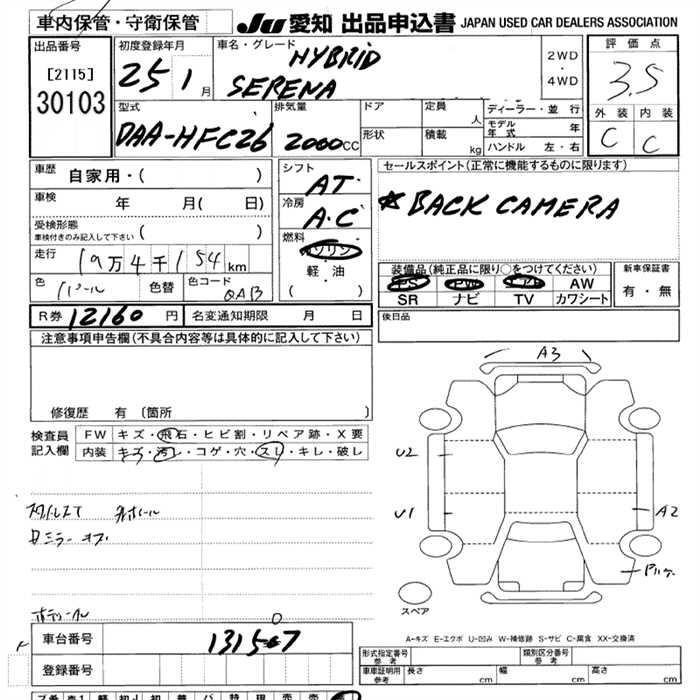 車内保管・守衛保管
JU 愛知 出品申込書 JAPAN USED CAR DEALERS ASSOCIATION
出品番号
[2115]
30103
初度登録年月
25 1月
車名・グレード
HYBRID
SERENA
2WD
・
4WD
評価点
3.5
外装 内装
C C
型式
DAA-HFC26
排気量
2000CC
ドア
形状
定員
人
積載
kg
ディーラー・並行
モデル年式 年
ハンドル 左・右
車歴 自家用・( )
車検 年 月( 日)
受検形態
車検付きのみ記入して下さい ( )
走行 19万4千154km
色 パール 色替 色コード QAB
シフト
AT
冷房
A.C
燃料
ガソリン
軽・油
( )
セールスポイント(正常に機能するものに限ります)
☆BACK CAMERA
装備品(純正品に限り○をつけてください)
PS PW エアB AW
SR ナビ TV カワシート
新車保証書
有・無
R券 12160円 名変通知期限 月 日
後日品
注意事項申告欄(不具合内容等は具体的に記入して下さい)
修復歴 有 〔箇所 〕
検査員記入欄
FW キズ・飛石・ヒビ割・リペア跡・X要
内装 キズ・汚レ・コゲ・穴・スレ・キレ・破レ
A3
U2
U1
A2
スペア
A-キズ E-エクボ U-凹み W-補修跡 S-サビ C-腐食 XX-交換済
車台番号 131507
登録番号
形式指定番号
参考
類別区分番号
参考
車庫証明記入欄
参考
長さ cm 幅 cm 高さ cm